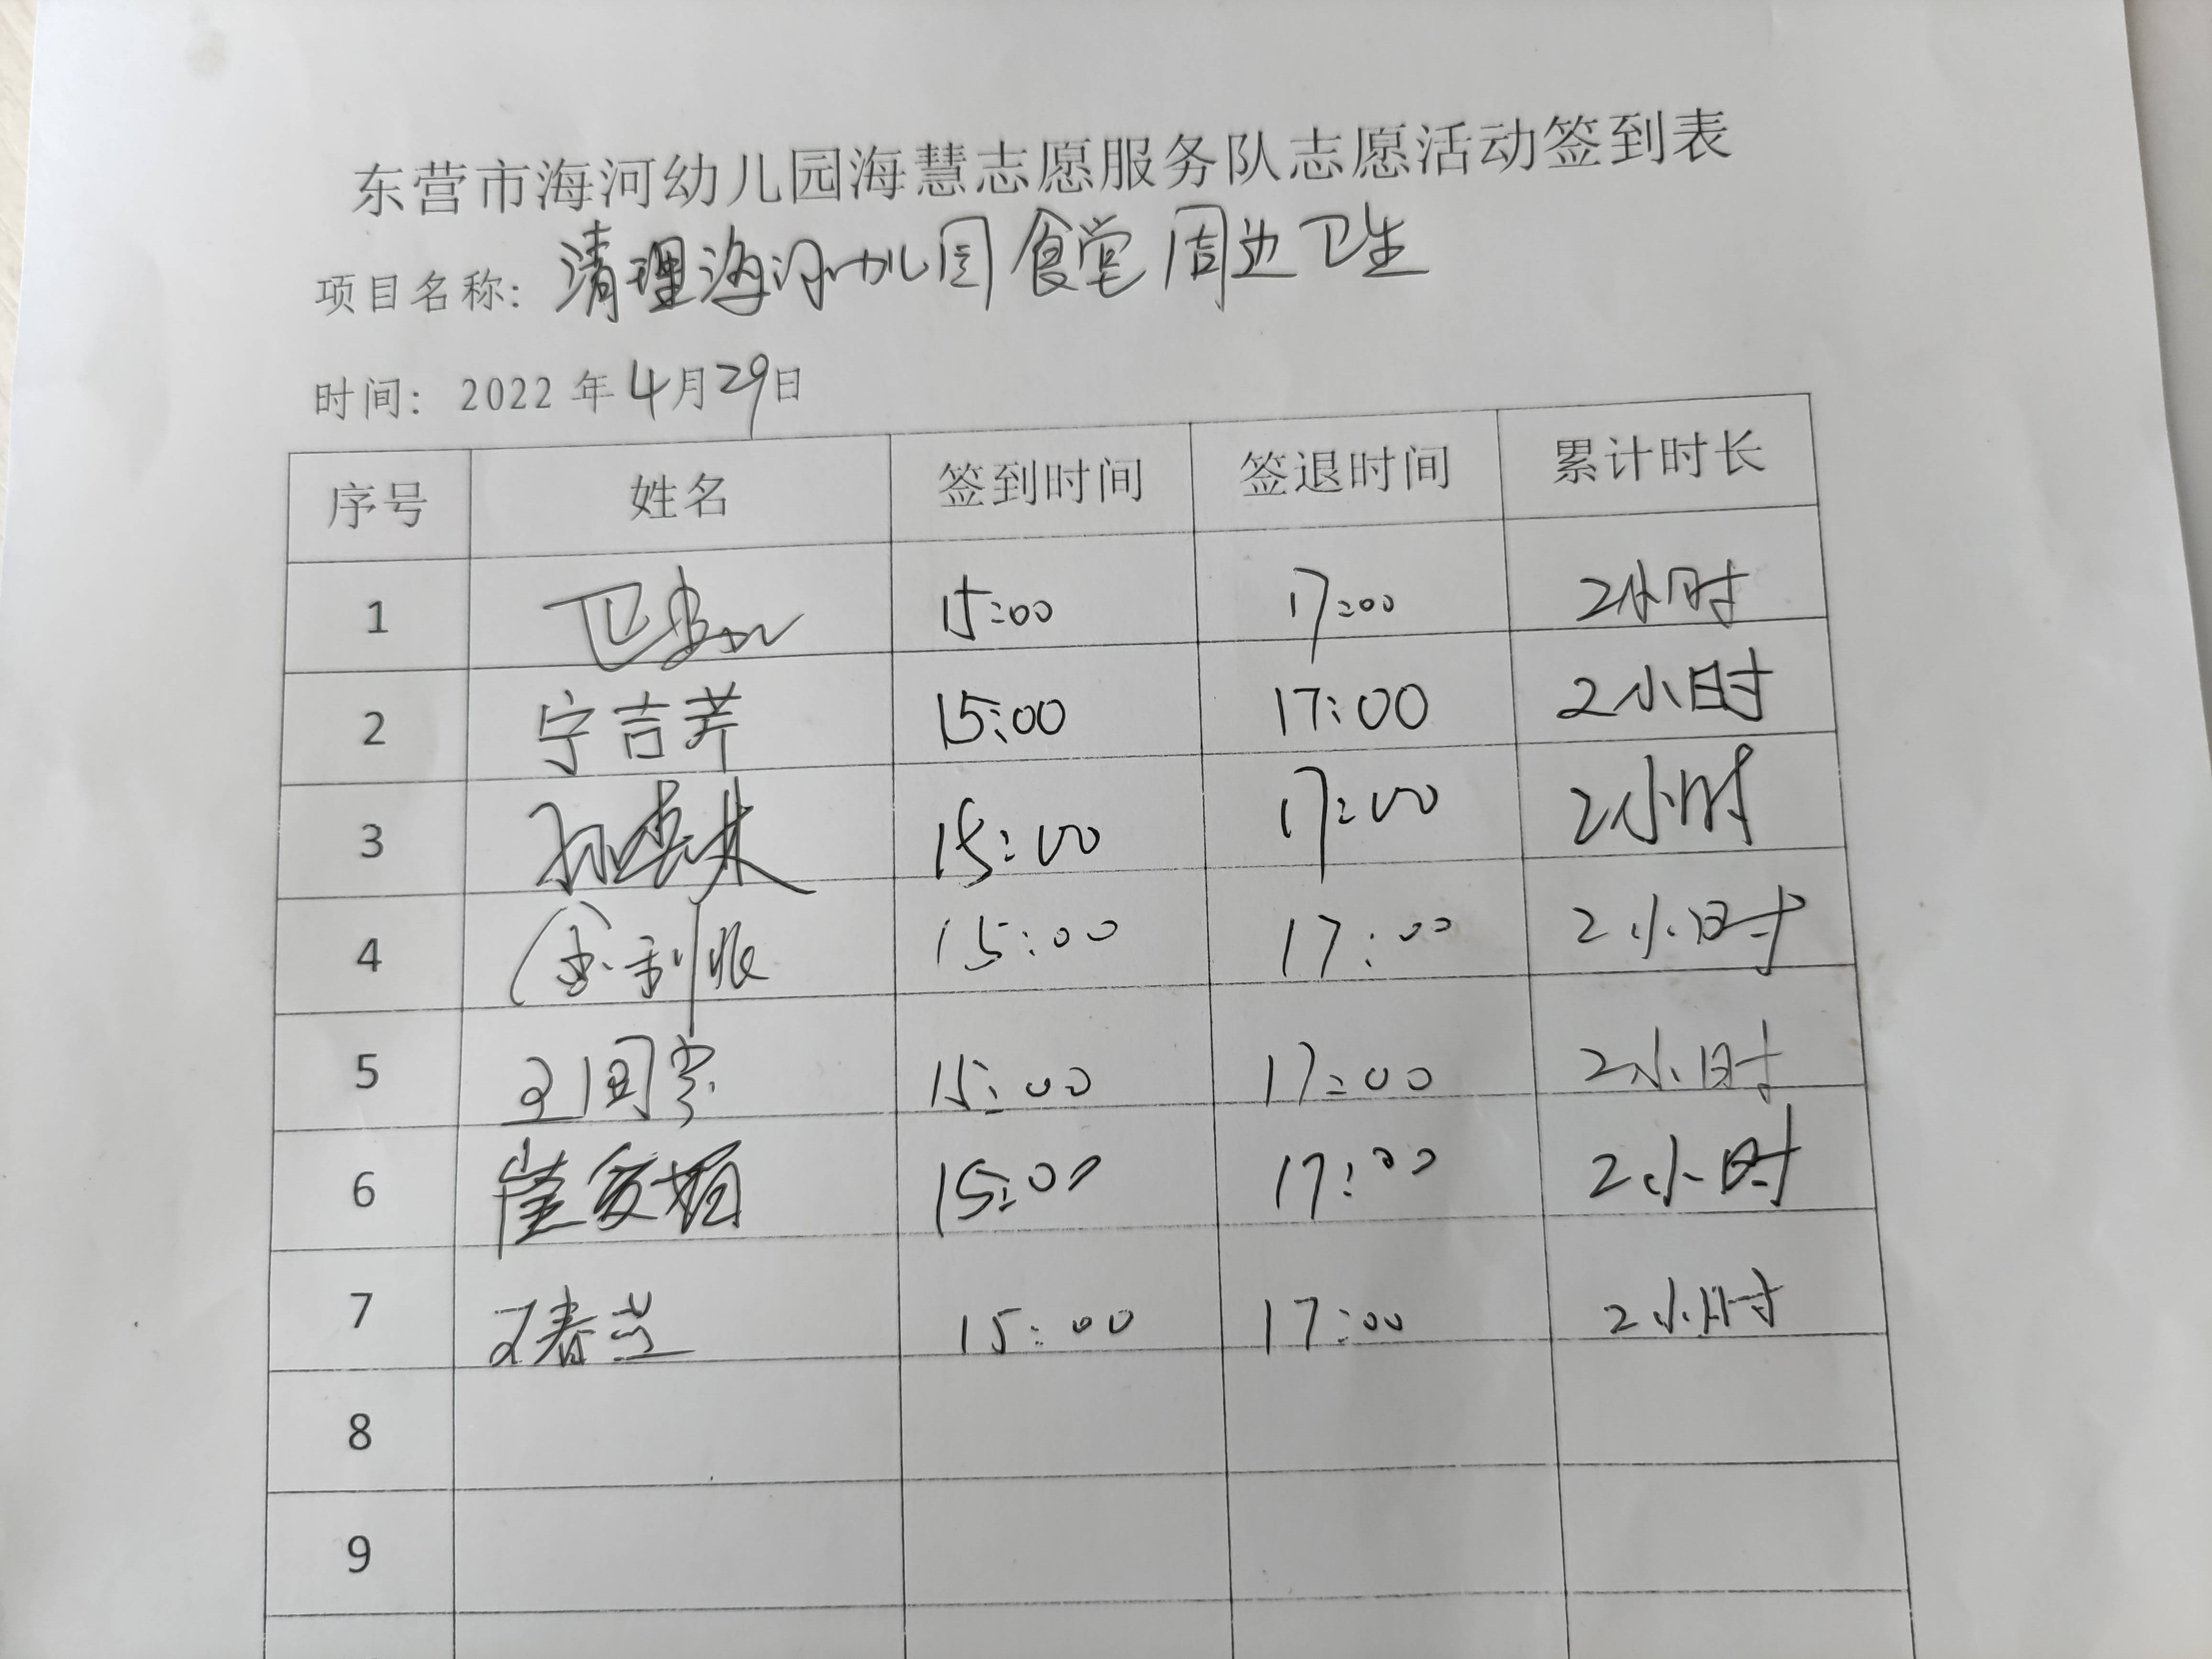 东营市海河幼儿园海慧志愿服务队志愿活动签到表
项目名称：清理海河幼儿园食堂周边卫生
时间：2022 年 4月29日
序号 姓名 签到时间 签退时间 累计时长
1 15:00 17:00 2小时
2 宁吉芹 15:00 17:00 2小时
3 15:00 17:00 2小时
4 15:00 17:00 2小时
5 王国宗 15:00 17:00 2小时
6 崔爱娟 15:00 17:00 2小时
7 王春兰 15:00 17:00 2小时
8
9